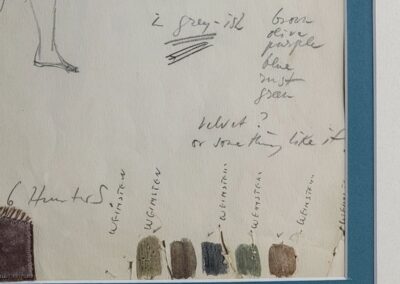 2 grey-ish
brown
olive
purple
blue
rust
green
velvet?
or something like it
6 Hunters
WEINSTEIN
WEINSTEIN
WEINSTEIN
WEINSTEIN
WEINSTEIN